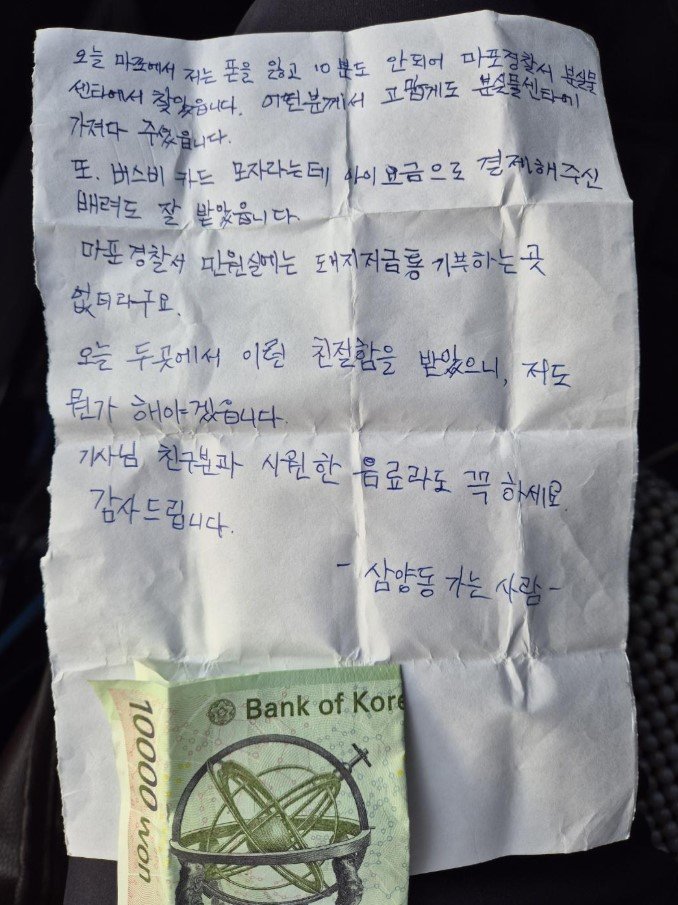 오늘 마포에서 저는 폰을 잃고 10분도 안되어 마포경찰서 분실물
센타에서 찾았읍니다. 어떤분께서 고맙게도 분실물센타에
가져다 주었읍니다.
또. 버스비 카드 모자라는데 아이요금으로 결제해주신
배려도 잘 받았읍니다.
마포경찰서 민원실에는 돼지저금통 기부하는 곳
없더라구요.
오늘 두곳에서 이런 친절함을 받았으니, 저도
뭔가 해야겠읍니다.
기사님 친구분과 시원한 음료라도 꼭 하세요.
감사드립니다.
- 삼양동 가는 사람 -
Bank of Kore
10000 won